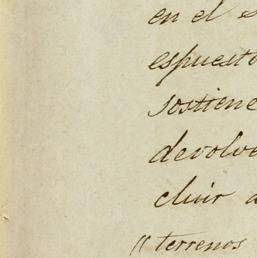 en el s
espuesto
sostiene
devolve
cluir a
" terrenos